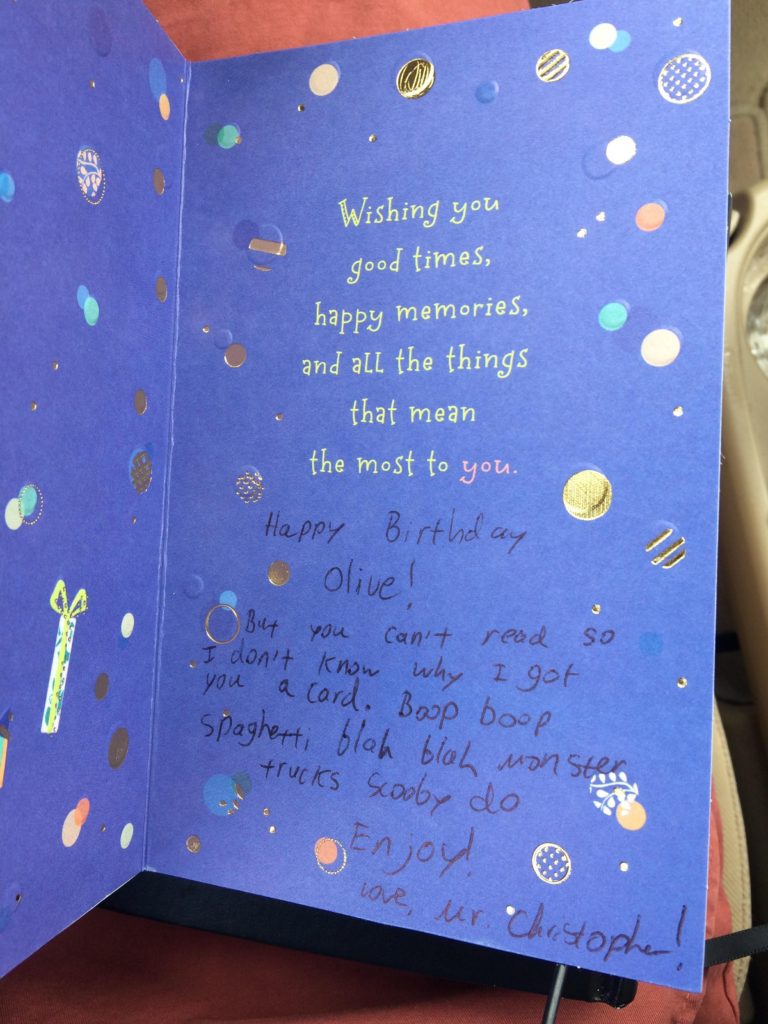 Wishing you
good times,
happy memories,
and all the things
that mean
the most to you.
Happy Birthday
Olive!
But you can't read so
I don't know why I got
you a card. Boop boop
spaghetti blah blah monster
trucks scooby do
Enjoy!
Love, Mr. Christopher!